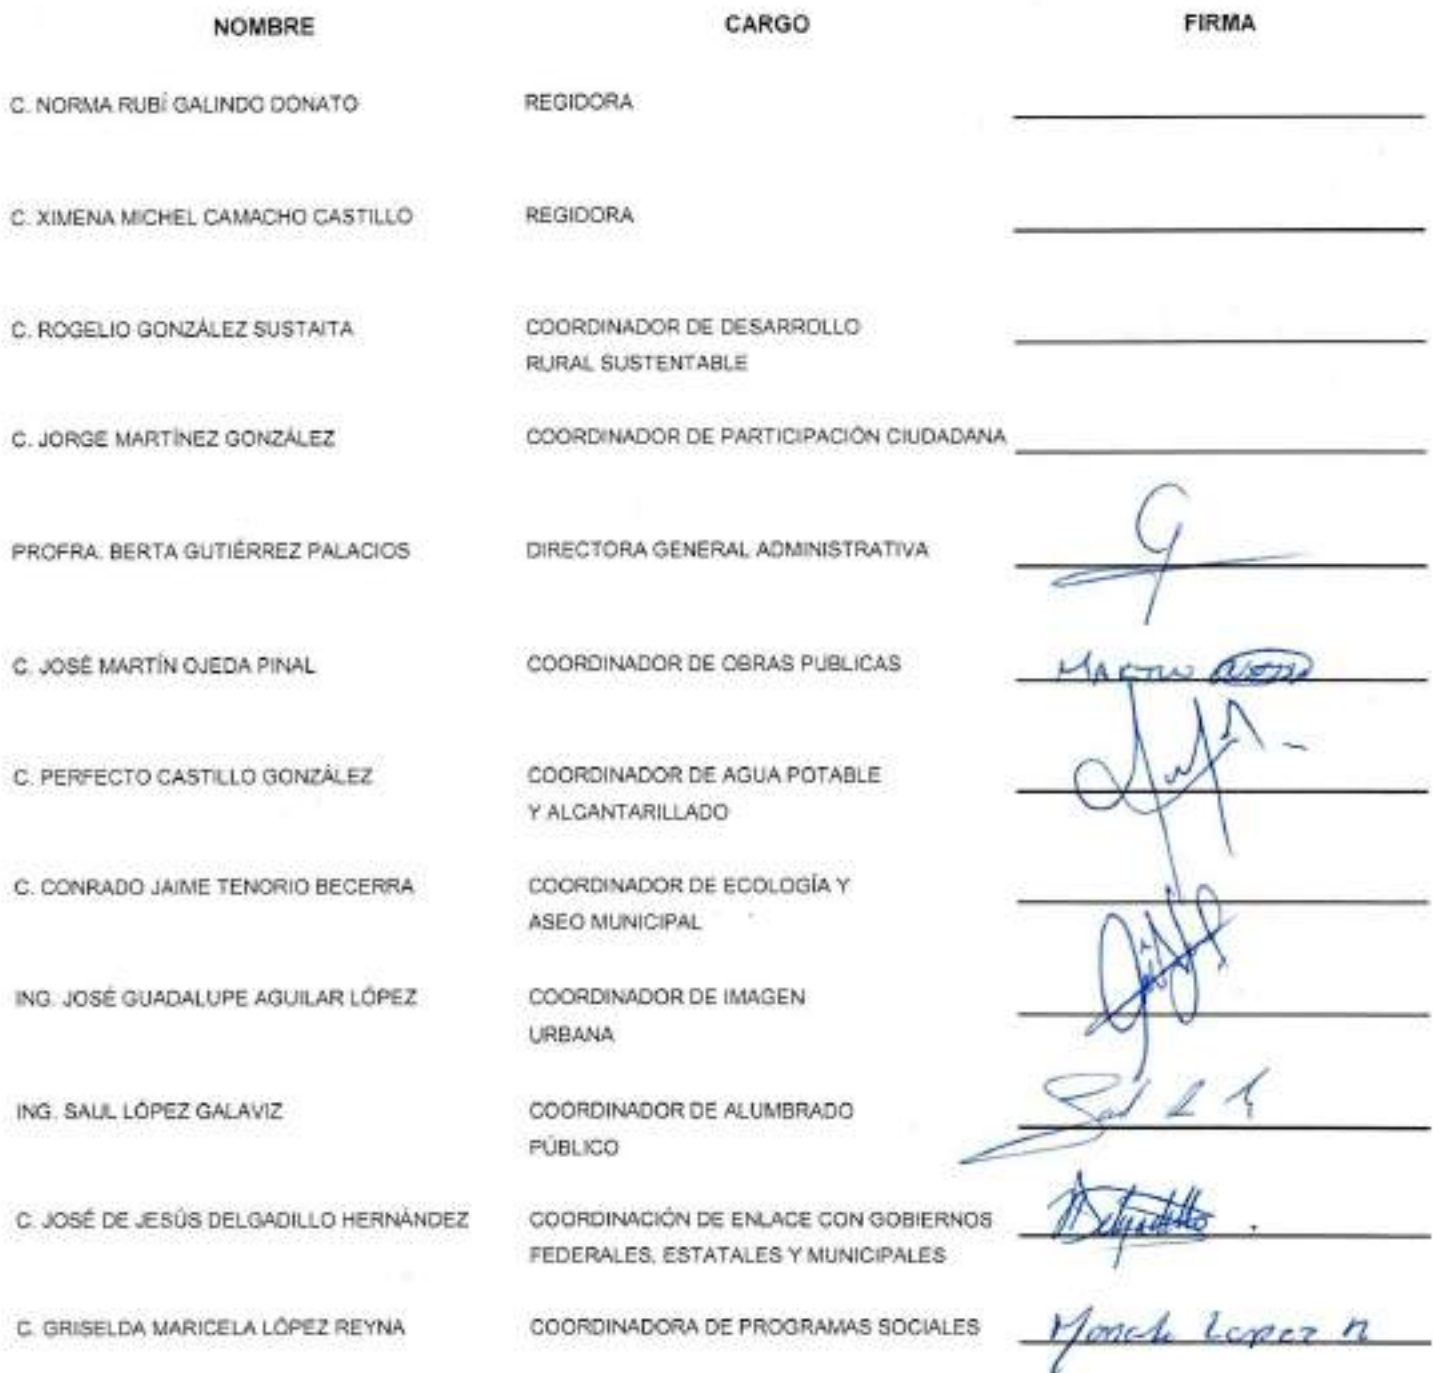 NOMBRE CARGO FIRMA
C. NORMA RUBÍ GALINDO DONATO REGIDORA
C. XIMENA MICHEL CAMACHO CASTILLO REGIDORA
C. ROGELIO GONZÁLEZ SUSTAITA COORDINADOR DE DESARROLLO
RURAL SUSTENTABLE
C. JORGE MARTÍNEZ GONZÁLEZ COORDINADOR DE PARTICIPACIÓN CIUDADANA
PROFRA. BERTA GUTIÉRREZ PALACIOS DIRECTORA GENERAL ADMINISTRATIVA
C. JOSÉ MARTÍN OJEDA PINAL COORDINADOR DE OBRAS PUBLICAS MARTIN
C. PERFECTO CASTILLO GONZÁLEZ COORDINADOR DE AGUA POTABLE
Y ALCANTARILLADO
C. CONRADO JAIME TENORIO BECERRA COORDINADOR DE ECOLOGÍA Y
ASEO MUNICIPAL
ING. JOSÉ GUADALUPE AGUILAR LÓPEZ COORDINADOR DE IMAGEN
URBANA
ING. SAUL LÓPEZ GALAVIZ COORDINADOR DE ALUMBRADO
PÚBLICO
C. JOSÉ DE JESÚS DELGADILLO HERNÁNDEZ COORDINACIÓN DE ENLACE CON GOBIERNOS Delgadillo
FEDERALES, ESTATALES Y MUNICIPALES
C. GRISELDA MARICELA LÓPEZ REYNA COORDINADORA DE PROGRAMAS SOCIALES Lopez